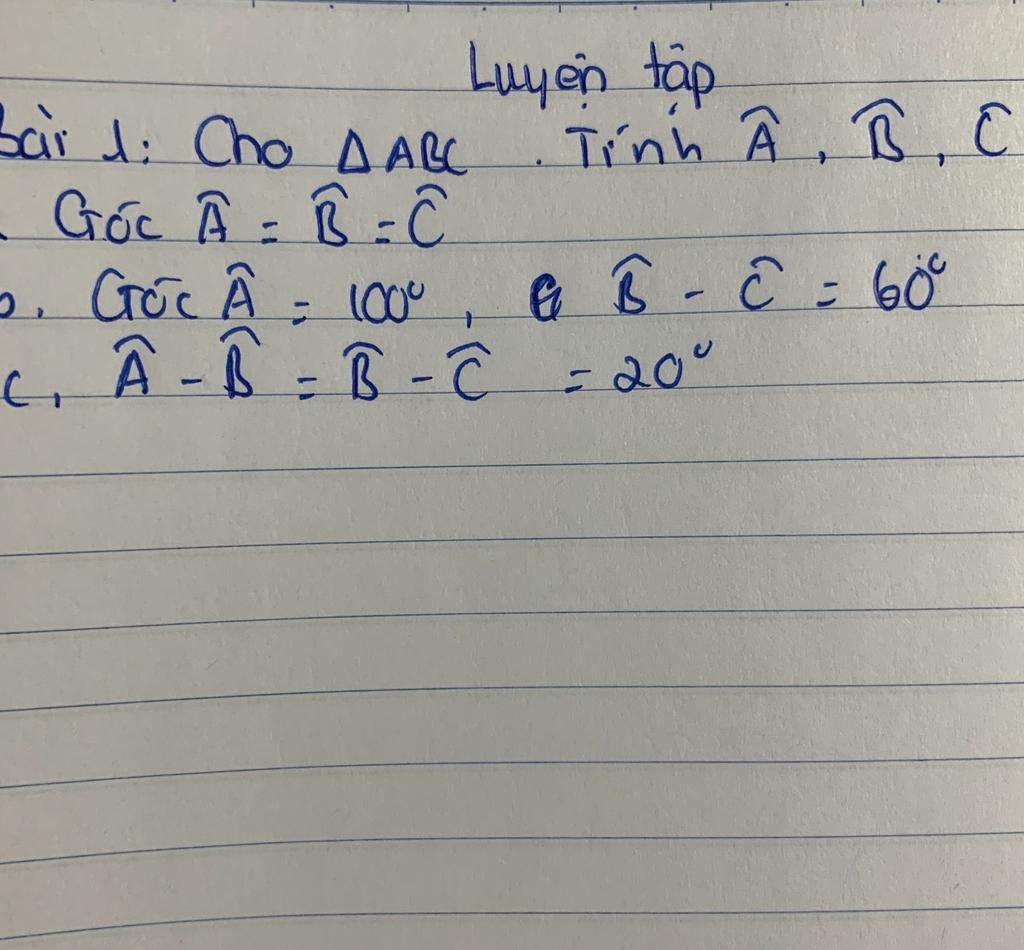 Luyện tập
Bài 1: Cho Δ ABC . Tính Â, B̂, Ĉ
Góc Â = B̂ = Ĉ
b. Góc Â = 100°, B̂ - Ĉ = 60°
c, Â - B̂ = B̂ - Ĉ = 20°